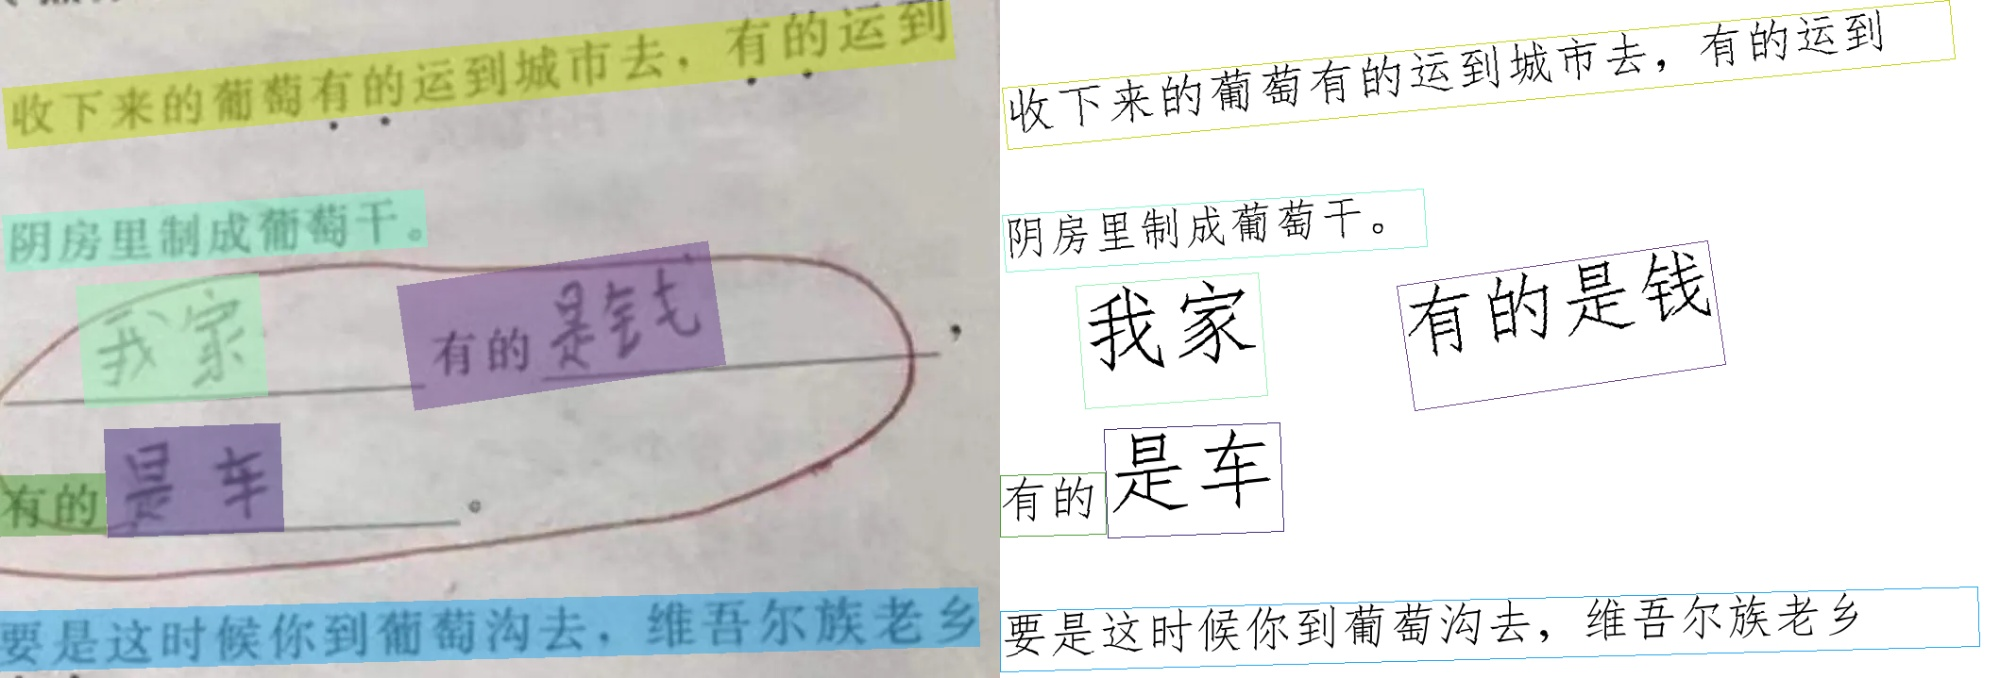 收下来的葡萄有的运到城市去，有的运到
阴房里制成葡萄干。
我家 有的是钱，
有的是车。
要是这时候你到葡萄沟去，维吾尔族老乡
收下来的葡萄有的运到城市去，有的运到
阴房里制成葡萄干。
我家 有的是钱
有的 是车
要是这时候你到葡萄沟去，维吾尔族老乡